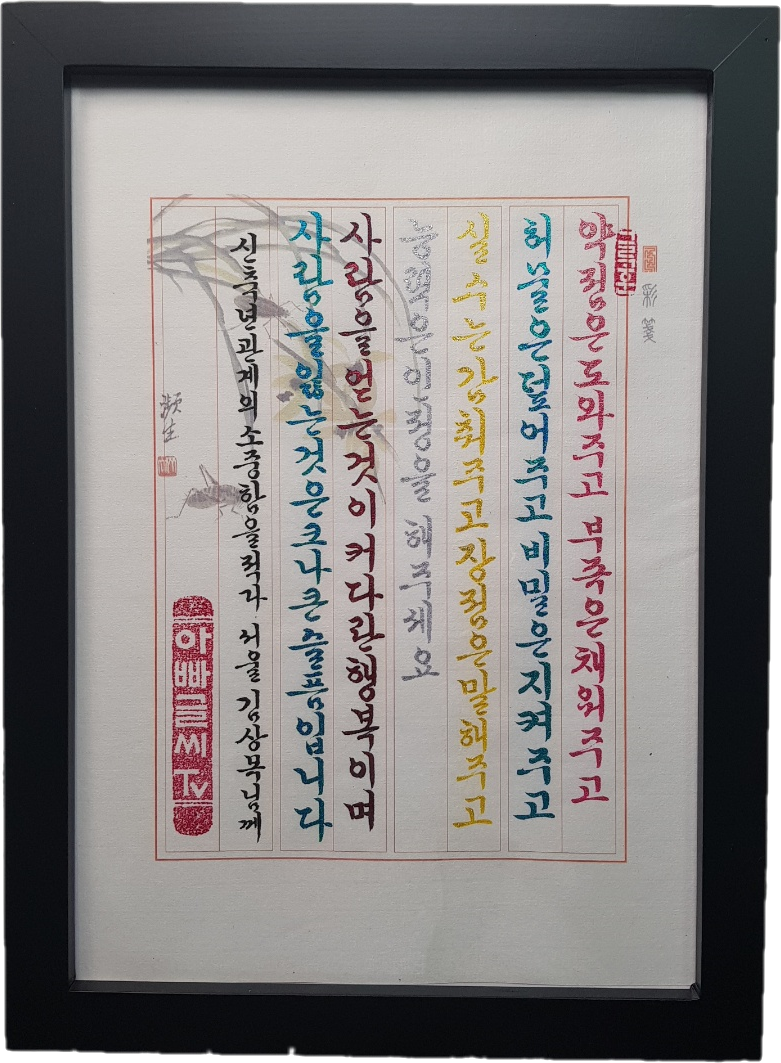 彩箋
약점은도와주고 부족은채워주고
허물은덮어주고 비밀은지켜주고
실수는감춰주고 장점은말해주고
능력은인정을 해주세요
사람을얻는것이커다란행복이며
사람을잃는것은크나큰슬픔입니다
신축년관계의소중함을적다 겨울 김상목님께
아빠글씨Tv